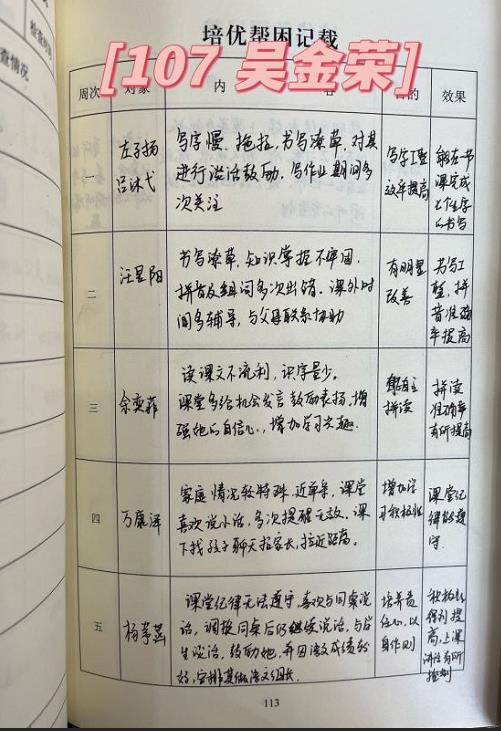 培优帮困记载
[107 吴金荣]
周次 对象 内 容 目的 效果
一
左子扬
吕沐弋
写字慢、拖拉,书写潦草,对其
进行谈话鼓励,写作业期间多
次关注
写字工整
速率提高
能在一节
课完成
生字
的书写
二
汪昱阳
书写潦草,知识掌握不牢固,
拼音及组词多次出错。课外时
间多辅导,与父母联系协助
有明显
改善
书写工
整,拼
音准确
率提高
三
余奕菲
读课文不流利,识字量少。
课堂多给机会发言,鼓励表扬,增
强他的自信心,增加学习兴趣.
自主
拼读
拼读
准确率
有所提高
四
万康泽
家庭情况较特殊,近单亲,课堂
喜欢说小话,多次提醒无效,课
下找孩子聊天找家长,拉近距离。
增加学
习积极性
课堂纪
律能遵
守.
五
课堂纪律无法遵守,喜欢与同桌说
话,调换同桌后仍继续说话,与学
生谈话,鼓励她,并因语文成绩较
好,安排其做语文组长.
培养责
任心,以
身作则
积极性
得到提
高,上课
讲话有所
控制
113